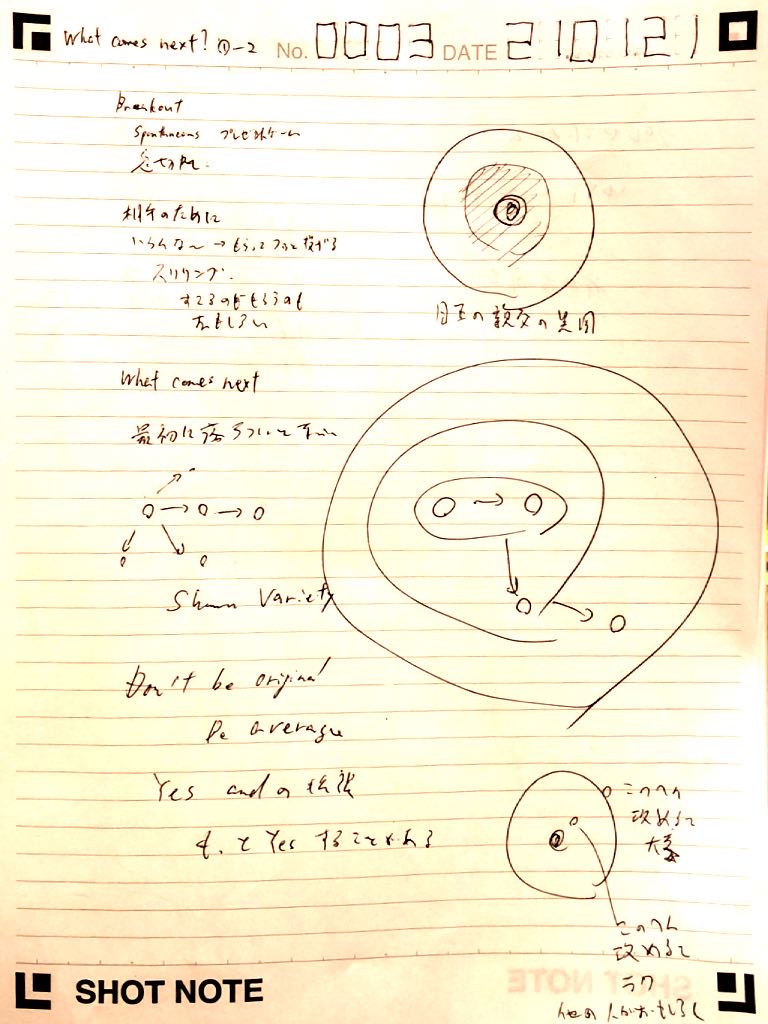 What comes next? ①-2
No. 0003 DATE 210121
Breakout
Spontaneous プレゼントゲーム
相手のために
いろんな〜→もらってフッと投げる
スリリング.
すてるのももらうのも
おもしろい
目玉の親父の
What comes next
最初に落ちついて
Shawn Variety
Don't be original
Be average
Yes andの
もっとYesすることがある
このへん
攻めると
大変
このへん
攻めると
ラク
SHOT NOTE